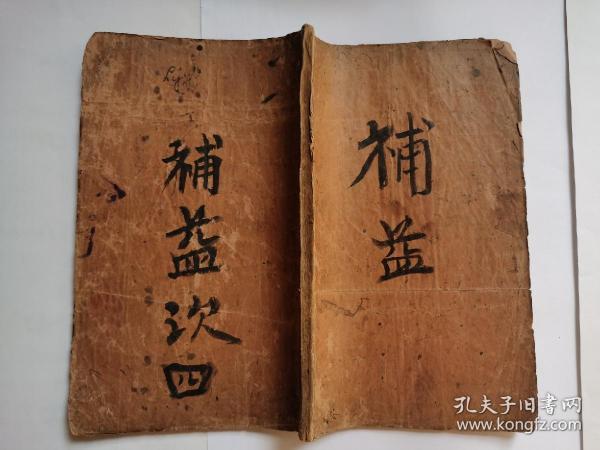 補益
補益次四
孔夫子旧書网
www.kongfz.com